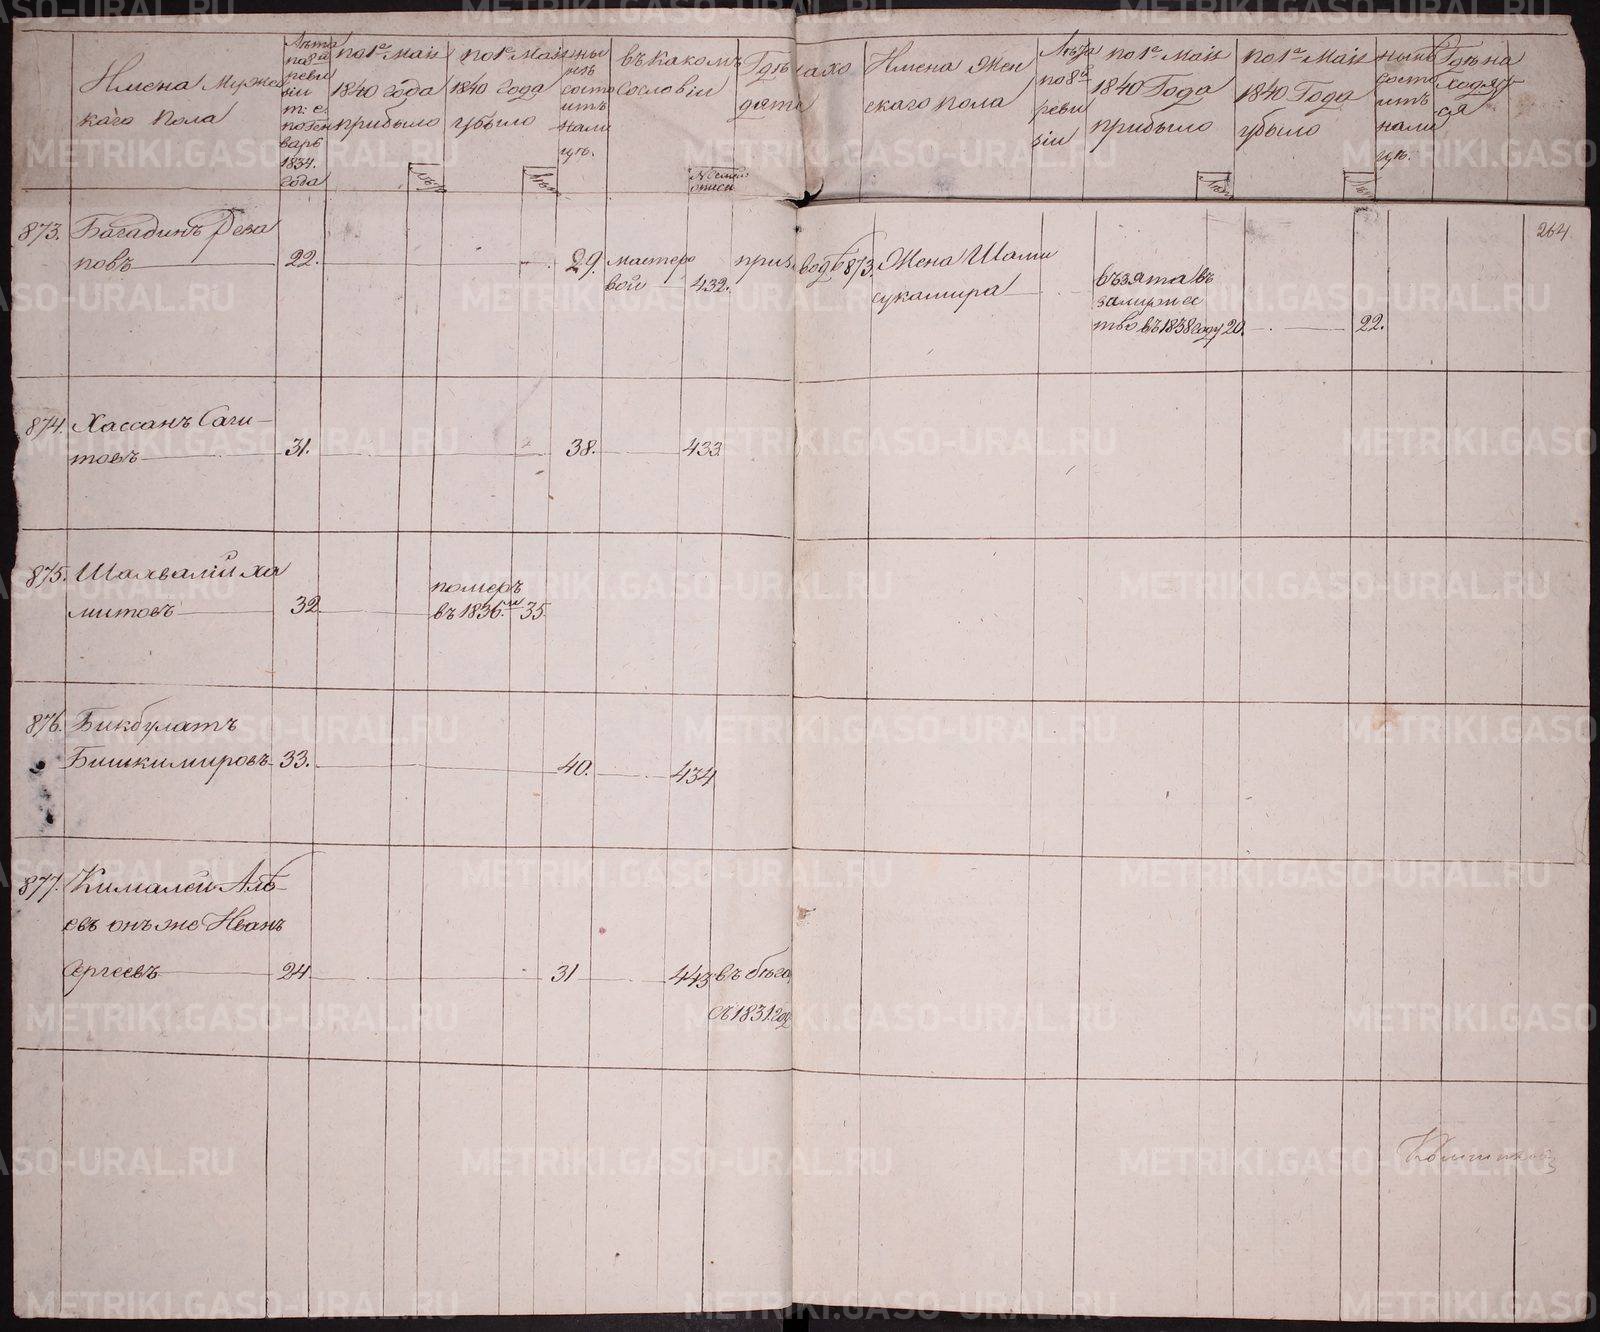 Имена Мужес
каго Пола
Лѣта
по 8й
реви
зіи
т: е.
по Ген
варь
1834.
года
по 1е Маія
1840 года
прибыло
Лѣтъ
по 1е Маія
1840 года
убыло
Лѣтъ
ныне
состо
итъ
нали
цѣ.
въ какомъ
сословіи
№ семей
описи
Гдѣ нахо
дятся
Имена Жен
скаго пола
Лѣта
по 8й
реви
зіи
по 1е Маія
1840 Года
прибыло
Лѣтъ
по 1е Маія
1840 Года
убыло
Лѣтъ
нынѣ
состо
итъ
нали
цѣ.
Гдѣ на
ходят
ся
264
873. Багадинъ Реза
повъ 22. 29. мастеро
вой 432. при заводѣ
873. Жена Шами
сукамира
възята въ
замужес
тво въ 1838 году 20. 22.
874. Хассанъ Саги
товъ 31. 38. 433
875. Шахвалій Ха
митовъ 32 померъ
въ 1836.м 35
876. Бикбулатъ
Бишкимировъ 33. 40. 434
877. Кималей Алѣ
евъ онъ же Иванъ
Сергеевъ 24 31 443 въ бѣга
съ 1831 год